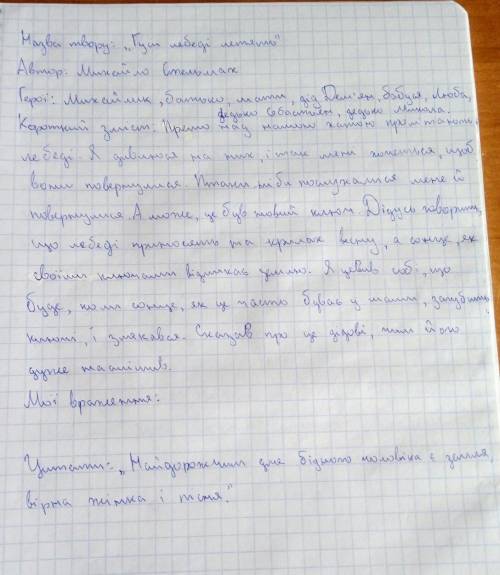 Назва твору: „Гуси лебеді летять"
Автор: Михайло Стельмах
Герої: Михайлик, батько, мати, дід Дем'ян, бабуся, Люба,
дядько Себастіян, дядько Микола.
Короткий зміст: Прямо над нашою хатою пролітають
лебеді. Я дивлюся на них, і так мені хочеться, щоб
вони повернулися. Птахи ніби послухалися мене й
повернулися. А може, це був новий ключ. Дідусь говорить,
що лебеді приносять на крилах весну, а сонце, як
своїми ключами відмикає землю. Я уявив собі, що
буде, коли сонце, як це часто буває у мами, загубить
ключі, і злякався. Сказав про це дідові, чим його
дуже насмішив.
Мої враження:
Цитати: „Найдорожчим для бідного чоловіка є земля,
вірна жінка і пісня."